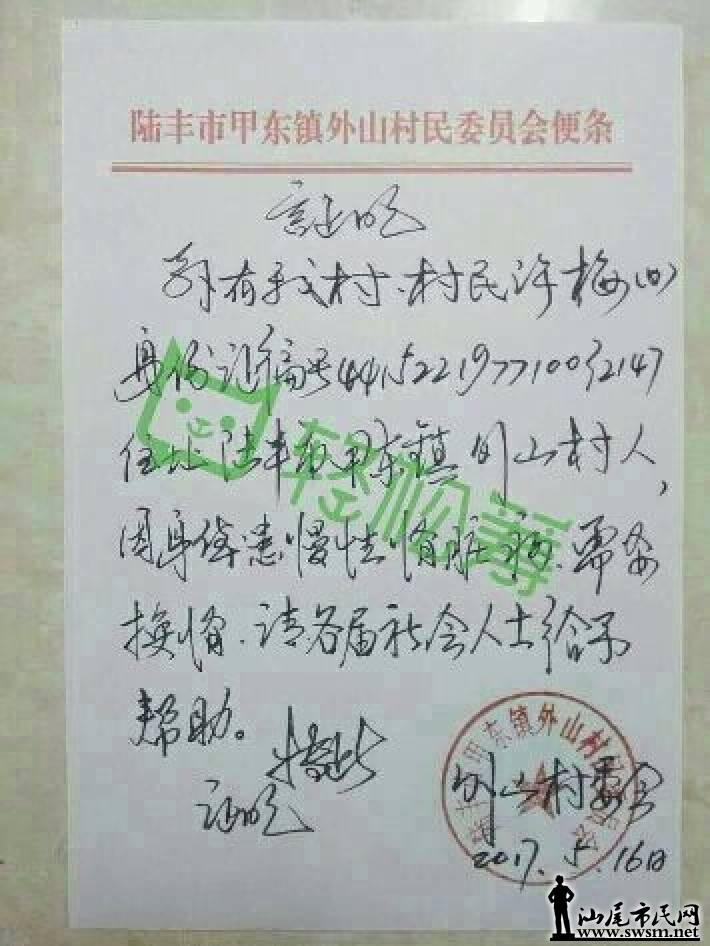 陆丰市甲东镇外山村民委员会便条
证明
兹有我村、村民许梅(女)
身份证编号441522197710032147
住址陆丰市甲东镇外山村人,
因身体患慢性肾脏病、需要
换肾、请各届社会人士给予
帮助。
特此
证明
外山村委会
2017.5.16日
轻松筹
甲东镇外山村
汕尾市民网
www.swsm.net